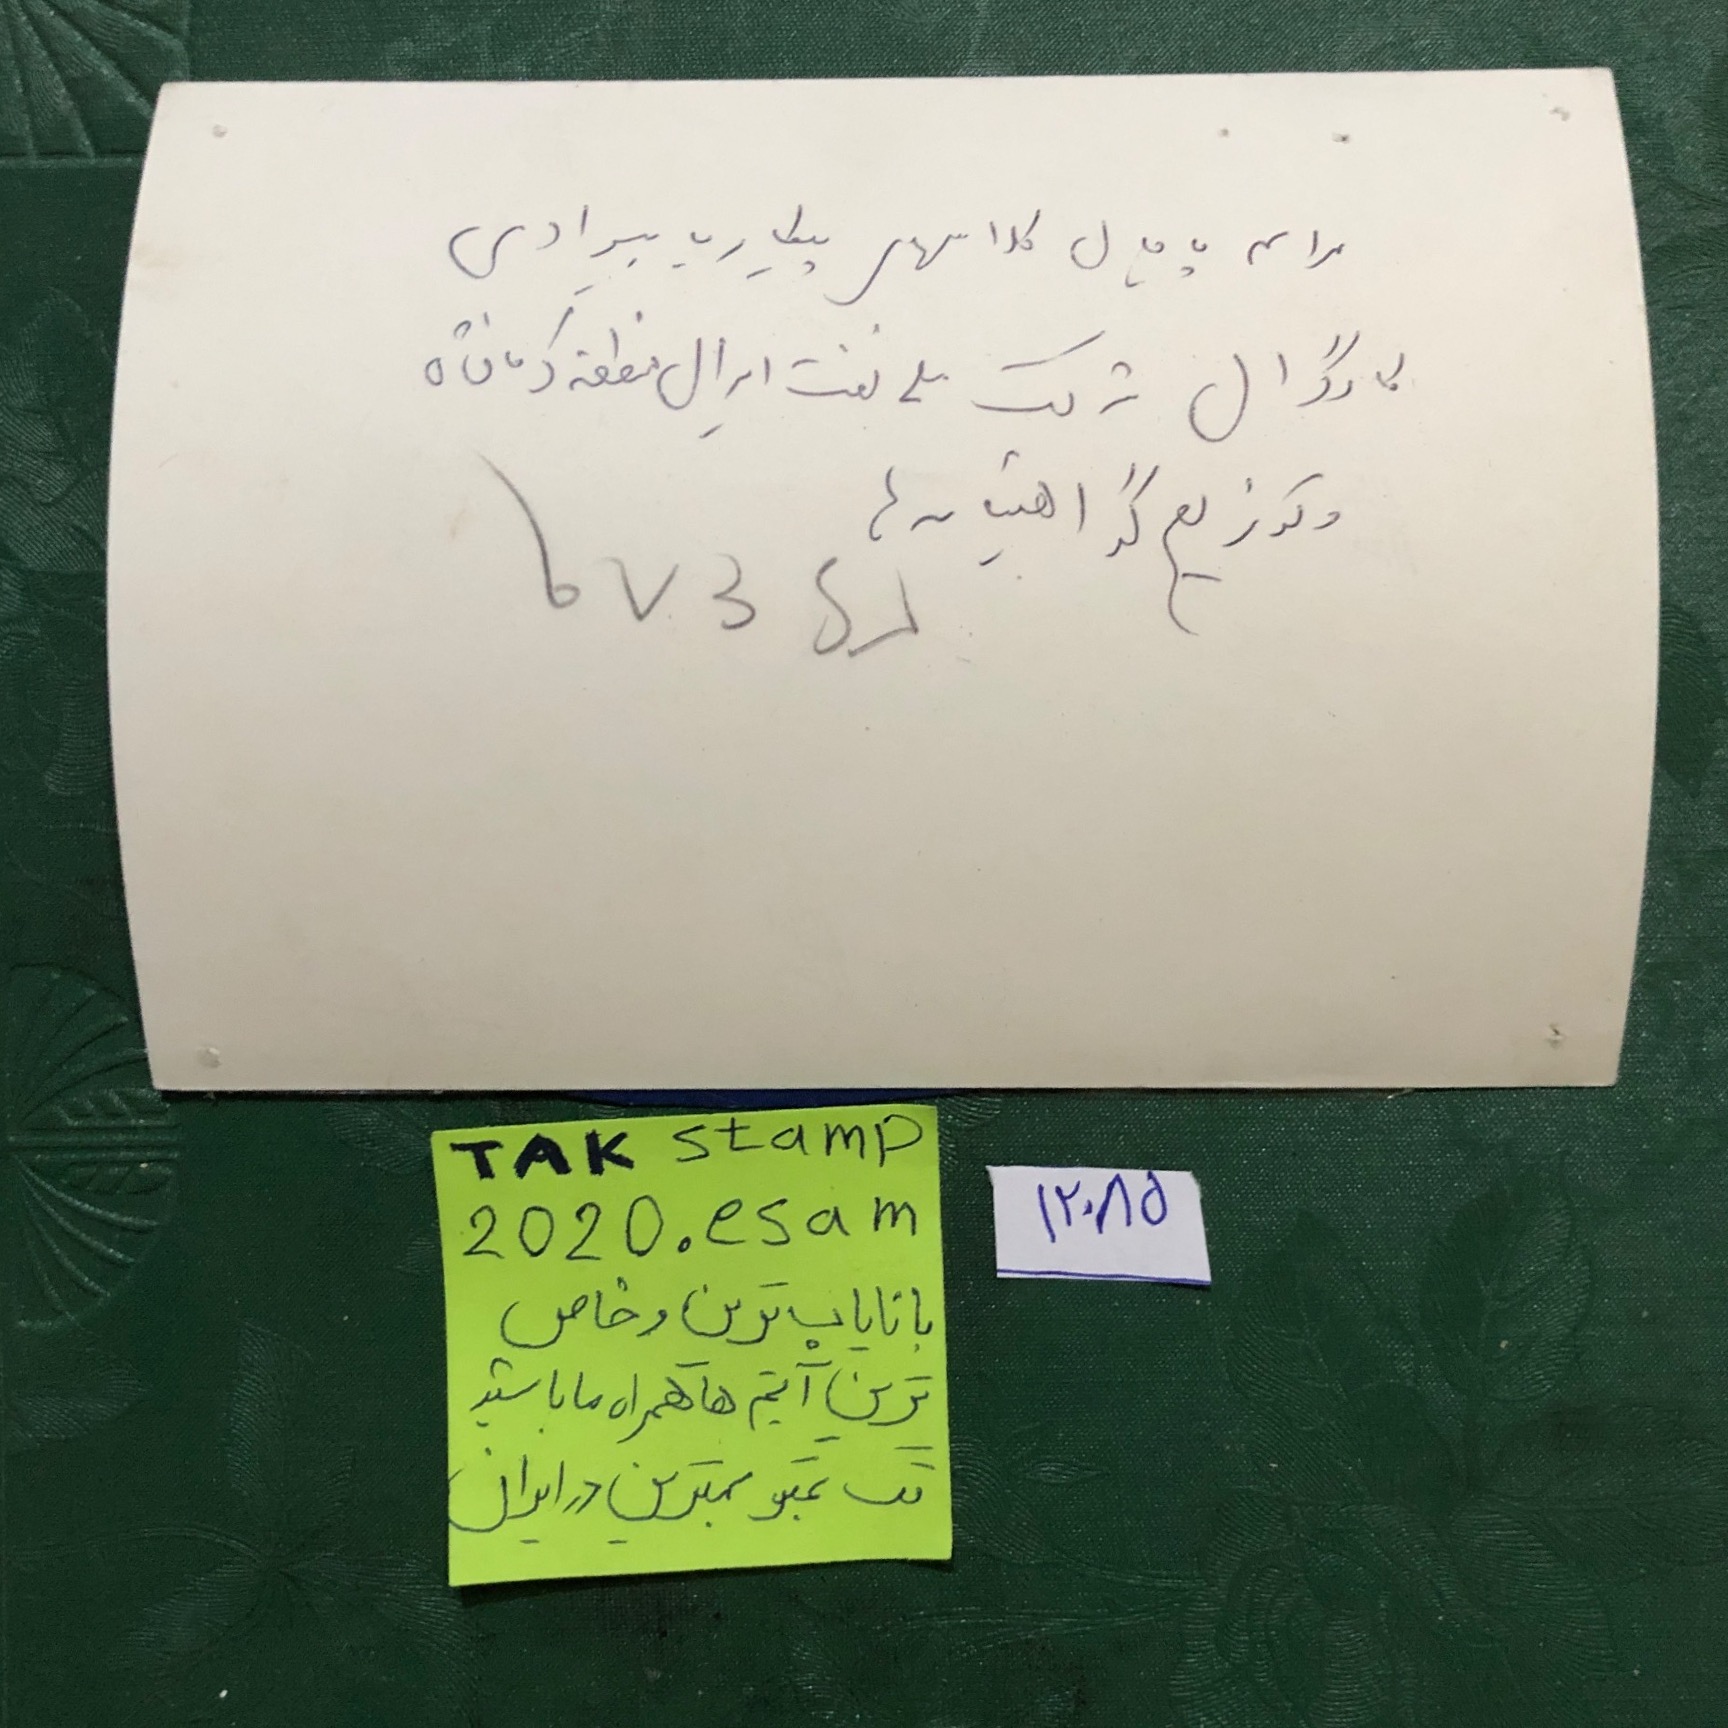 مراسم پایان کلاسهای پیکار با بیسوادی
کارگران شرکت ملی نفت ایران منطقه کرمانشاه
و توزیع گواهینامه ها
TAK stamp
2020.esam
با نایاب ترین و خاص
ترین آیتم ها همراه ما باشید
تک تمبر بهترین در ایران
۱۲۰۸۵